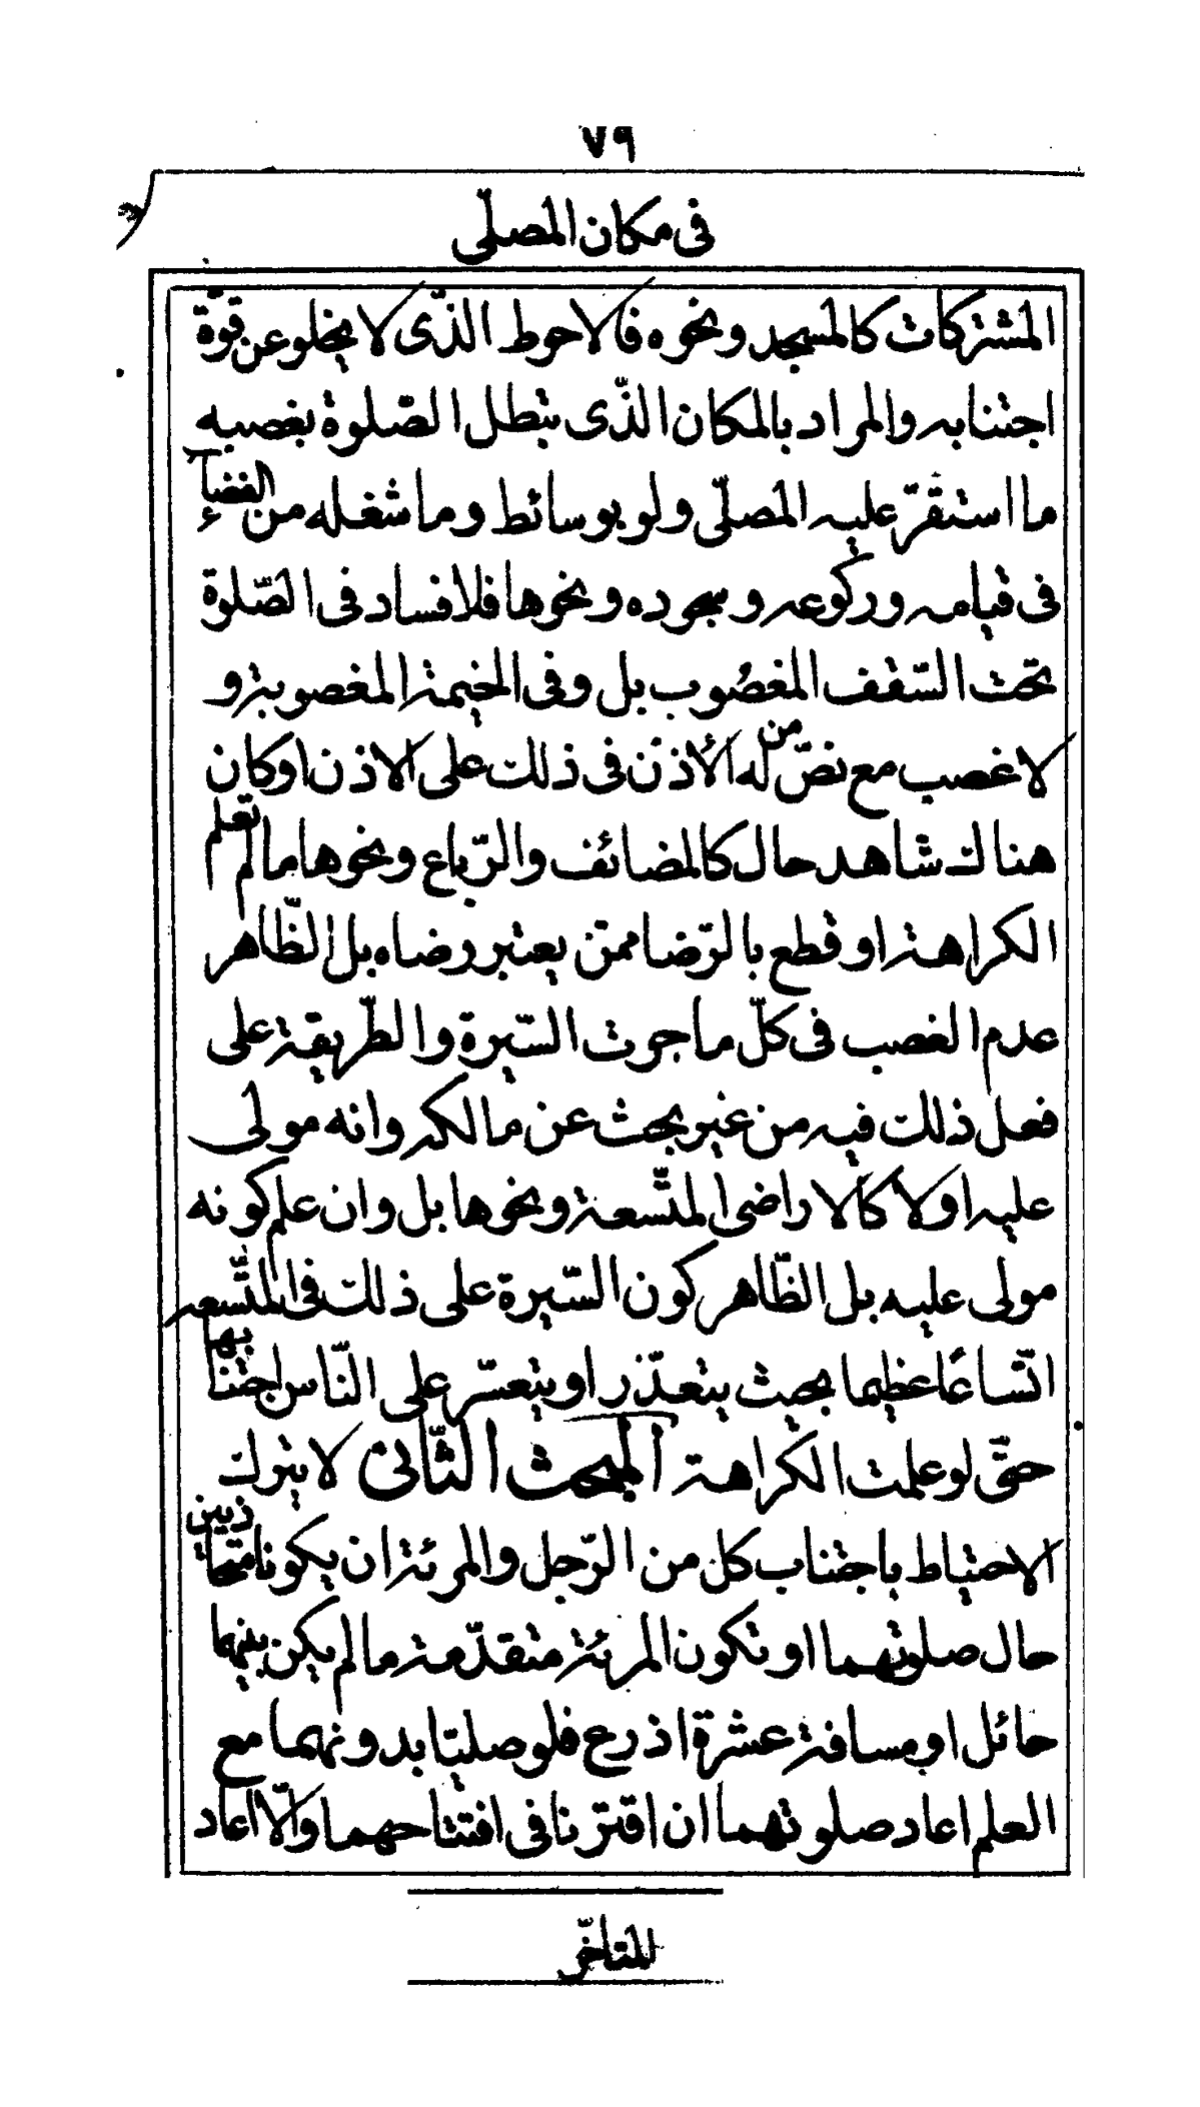 ٧٩
فى مكان المصلّى
المشتركات كالمسجد ونحوه فالاحوط الذّى لا يخلو عن قوّة
اجتنابه والمراد بالمكان الذّى تبطل الصّلوة بغصبه
ما استقرّ عليه المصلّى ولو بوسائط وما شغله من الفضاء
فى قيامه وركوعه وسجوده ونحوها فلا فساد فى الصّلوة
تحت السّقف المغصُوب بل وفى الخيمة المغصوبة و
لا غصب مع نصّ من له الأذن فى ذلك على الاذن اوكان
هناك شاهد حال كالمضائف والرّباع ونحوها مالم تعلم
الكراهة او قطع بالرّضا ممّن يعتبر رضاه بل الظّاهر
عدم الغصب فى كلّ ما جرت السّيرة والطّريقة على
فعل ذلك فيه من غير بحث عن مالكه وانه مولى
عليه اولا كالاراضى المتّسعة ونحوها بل وان علم كونه
مولى عليه بل الظّاهر كون السّيرة على ذلك فى المتّسعه
اتّساعًا عظيما بحيث يتعذّر او يتعسّر على النّاس اجتنابها
حتّى لو علمت الكراهة المبحث الثّانى لا يترك
الاحتياط باجتناب كل من الرّجل والمرئة ان يكونا متحاذيين
حال صلوتهما او تكون المرئة متقدّمة مالم يكن بينهما
حائل او مسافة عشرة اذرع فلو صليّا بدونهما مع
العلم اعاد صلوتهما ان اقترنا فى افتتاحهما والّا اعاد
المتاخّر